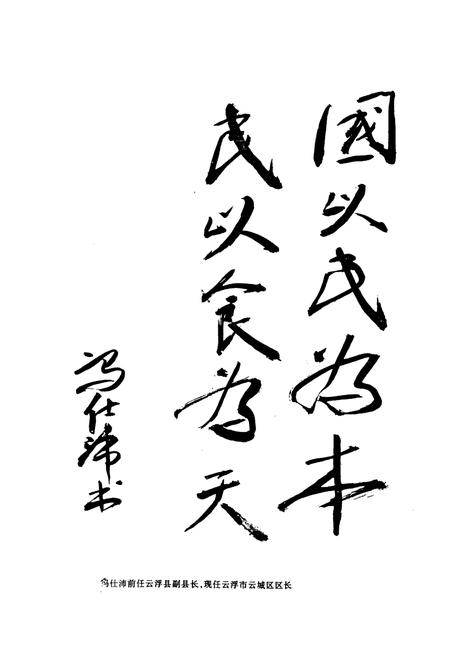 國以民為本
民以食為天
冯仕沛书
冯仕沛前任云浮县副县长,现任云浮市云城区区长